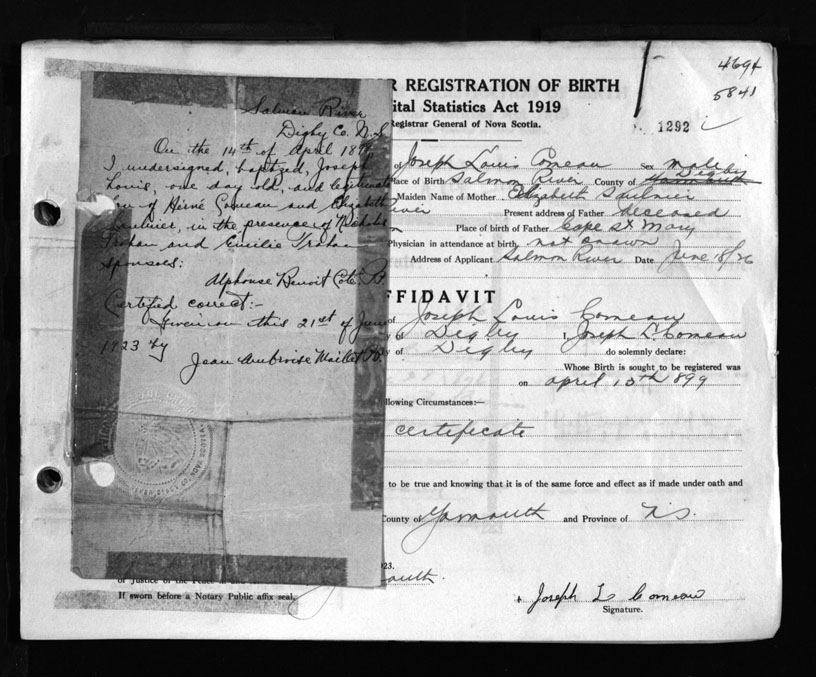 4694
5841
R REGISTRATION OF BIRTH
ital Statistics Act 1919
Registrar General of Nova Scotia.
1292
of Joseph Louis Comeau Sex male
Digby
Place of Birth Salmon River County of Yarmouth
Maiden Name of Mother Elizabeth Saulnier
Present address of Father deceased
Place of birth of Father Cape St Mary
Physician in attendance at birth, not known
Address of Applicant Salmon River Date June 18/26
Salmon River
Digby Co. N.S
On the 14th of April 189
I undersigned, baptized, Joseph
Louis, one day old, and legitimate
Son of Comeau and Elizabeth
Saulnier, in the presence of Nicholas
Trahan and Emilie Trahan
Sponsors:
Alphonse Benoit Coté
Certified correct:-
Given on this 21st of June
1923 by
Jean Ambroise Maillet
FFIDAVIT
of Joseph Louis Comeau
of Digby I, Joseph L. Comeau
y of Digby do solemnly declare:
Whose Birth is sought to be registered was
on April 13th 899
llowing Circumstances:—
Certificate
to be true and knowing that it is of the same force and effect as if made under oath and
County of Yarmouth and Province of N.S.
923.
outh.
of Justice of the Peace in and
If sworn before a Notary Public affix seal.
Joseph L Comeau
Signature.